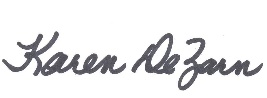 Karen DeZarn